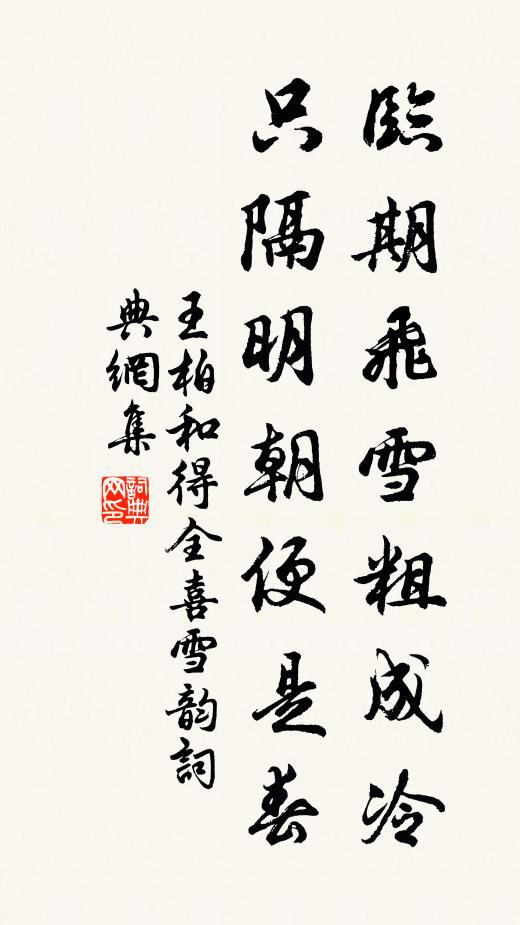 臨期飛雪粗成冷
只隔明朝便是春
王柏和得全喜雪韵詞
典網集
詞典
网印